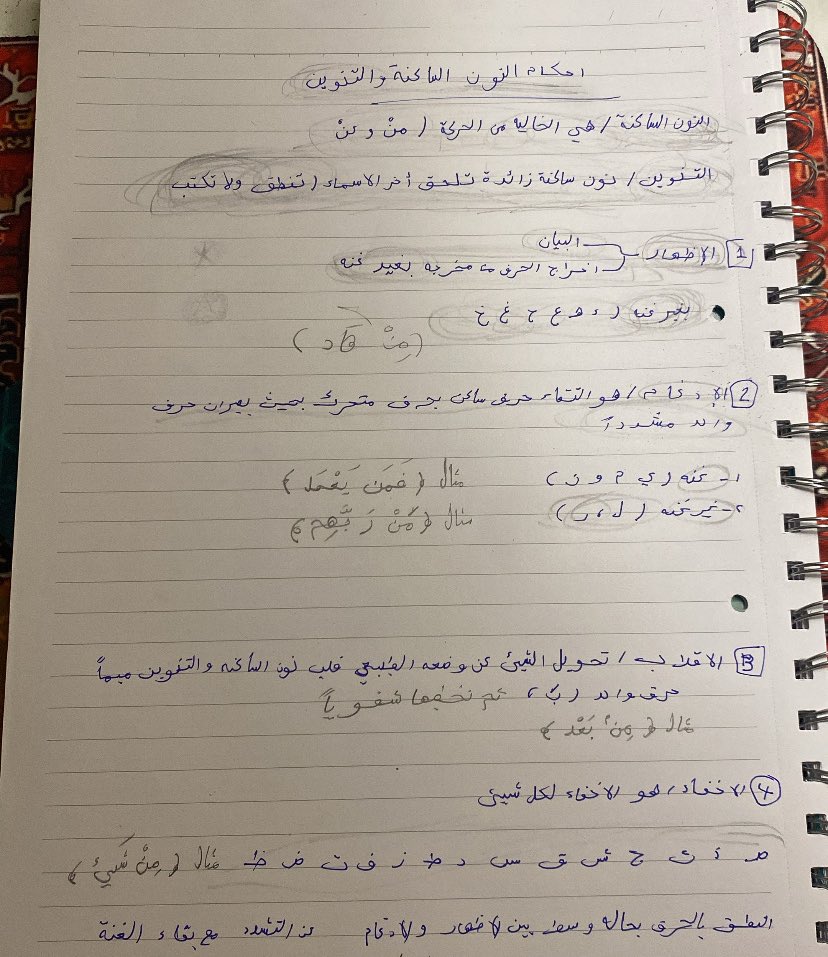 احكام النون الساكنة والتنوين
النون الساكنة / هي الخاليه من الحركة ( منْ وعنْ
التنوين / نون ساكنة زائدة تلحق أخر الاسماء ( تنطق ولا تكتب
1 الإظهار البيان
اخراج الحرف من مخرجه بغير غنه
بغير غنه ( ء ه ع ح غ خ
(مِنْ هَاد)
2 الإدغام / هو التقاء حرف ساكن بحرف متحرك بحيث يصيران حرف
واحد مشدداً
١- غنه ( ي م و ن ) مثال ﴿ فَمَن يَعْمَل ﴾
٢- غير غنه ( ل ، ر ) مثال ﴿ مِّنْ رَبِّهِم ﴾
3 الاقلاب / تحويل الشيئ عن وضعه الطبيعي قلب نون الساكنه والتنوين ميماً
حرف واحد ( ب ) ، ثم نخفيها شفوياً
مثال ﴿ مِنْ بَعْد ﴾
4 الاخفاء / هو الاخفاء لكل شيئ
ص ذ ث ج ش ق س د ط ز ف ت ض ظ مثال ﴿ مِنْ شَيئ ﴾
النطق بالحرف بحاله وسط بين الاظهار والادغام عن التشدد مع بقاء الغنة